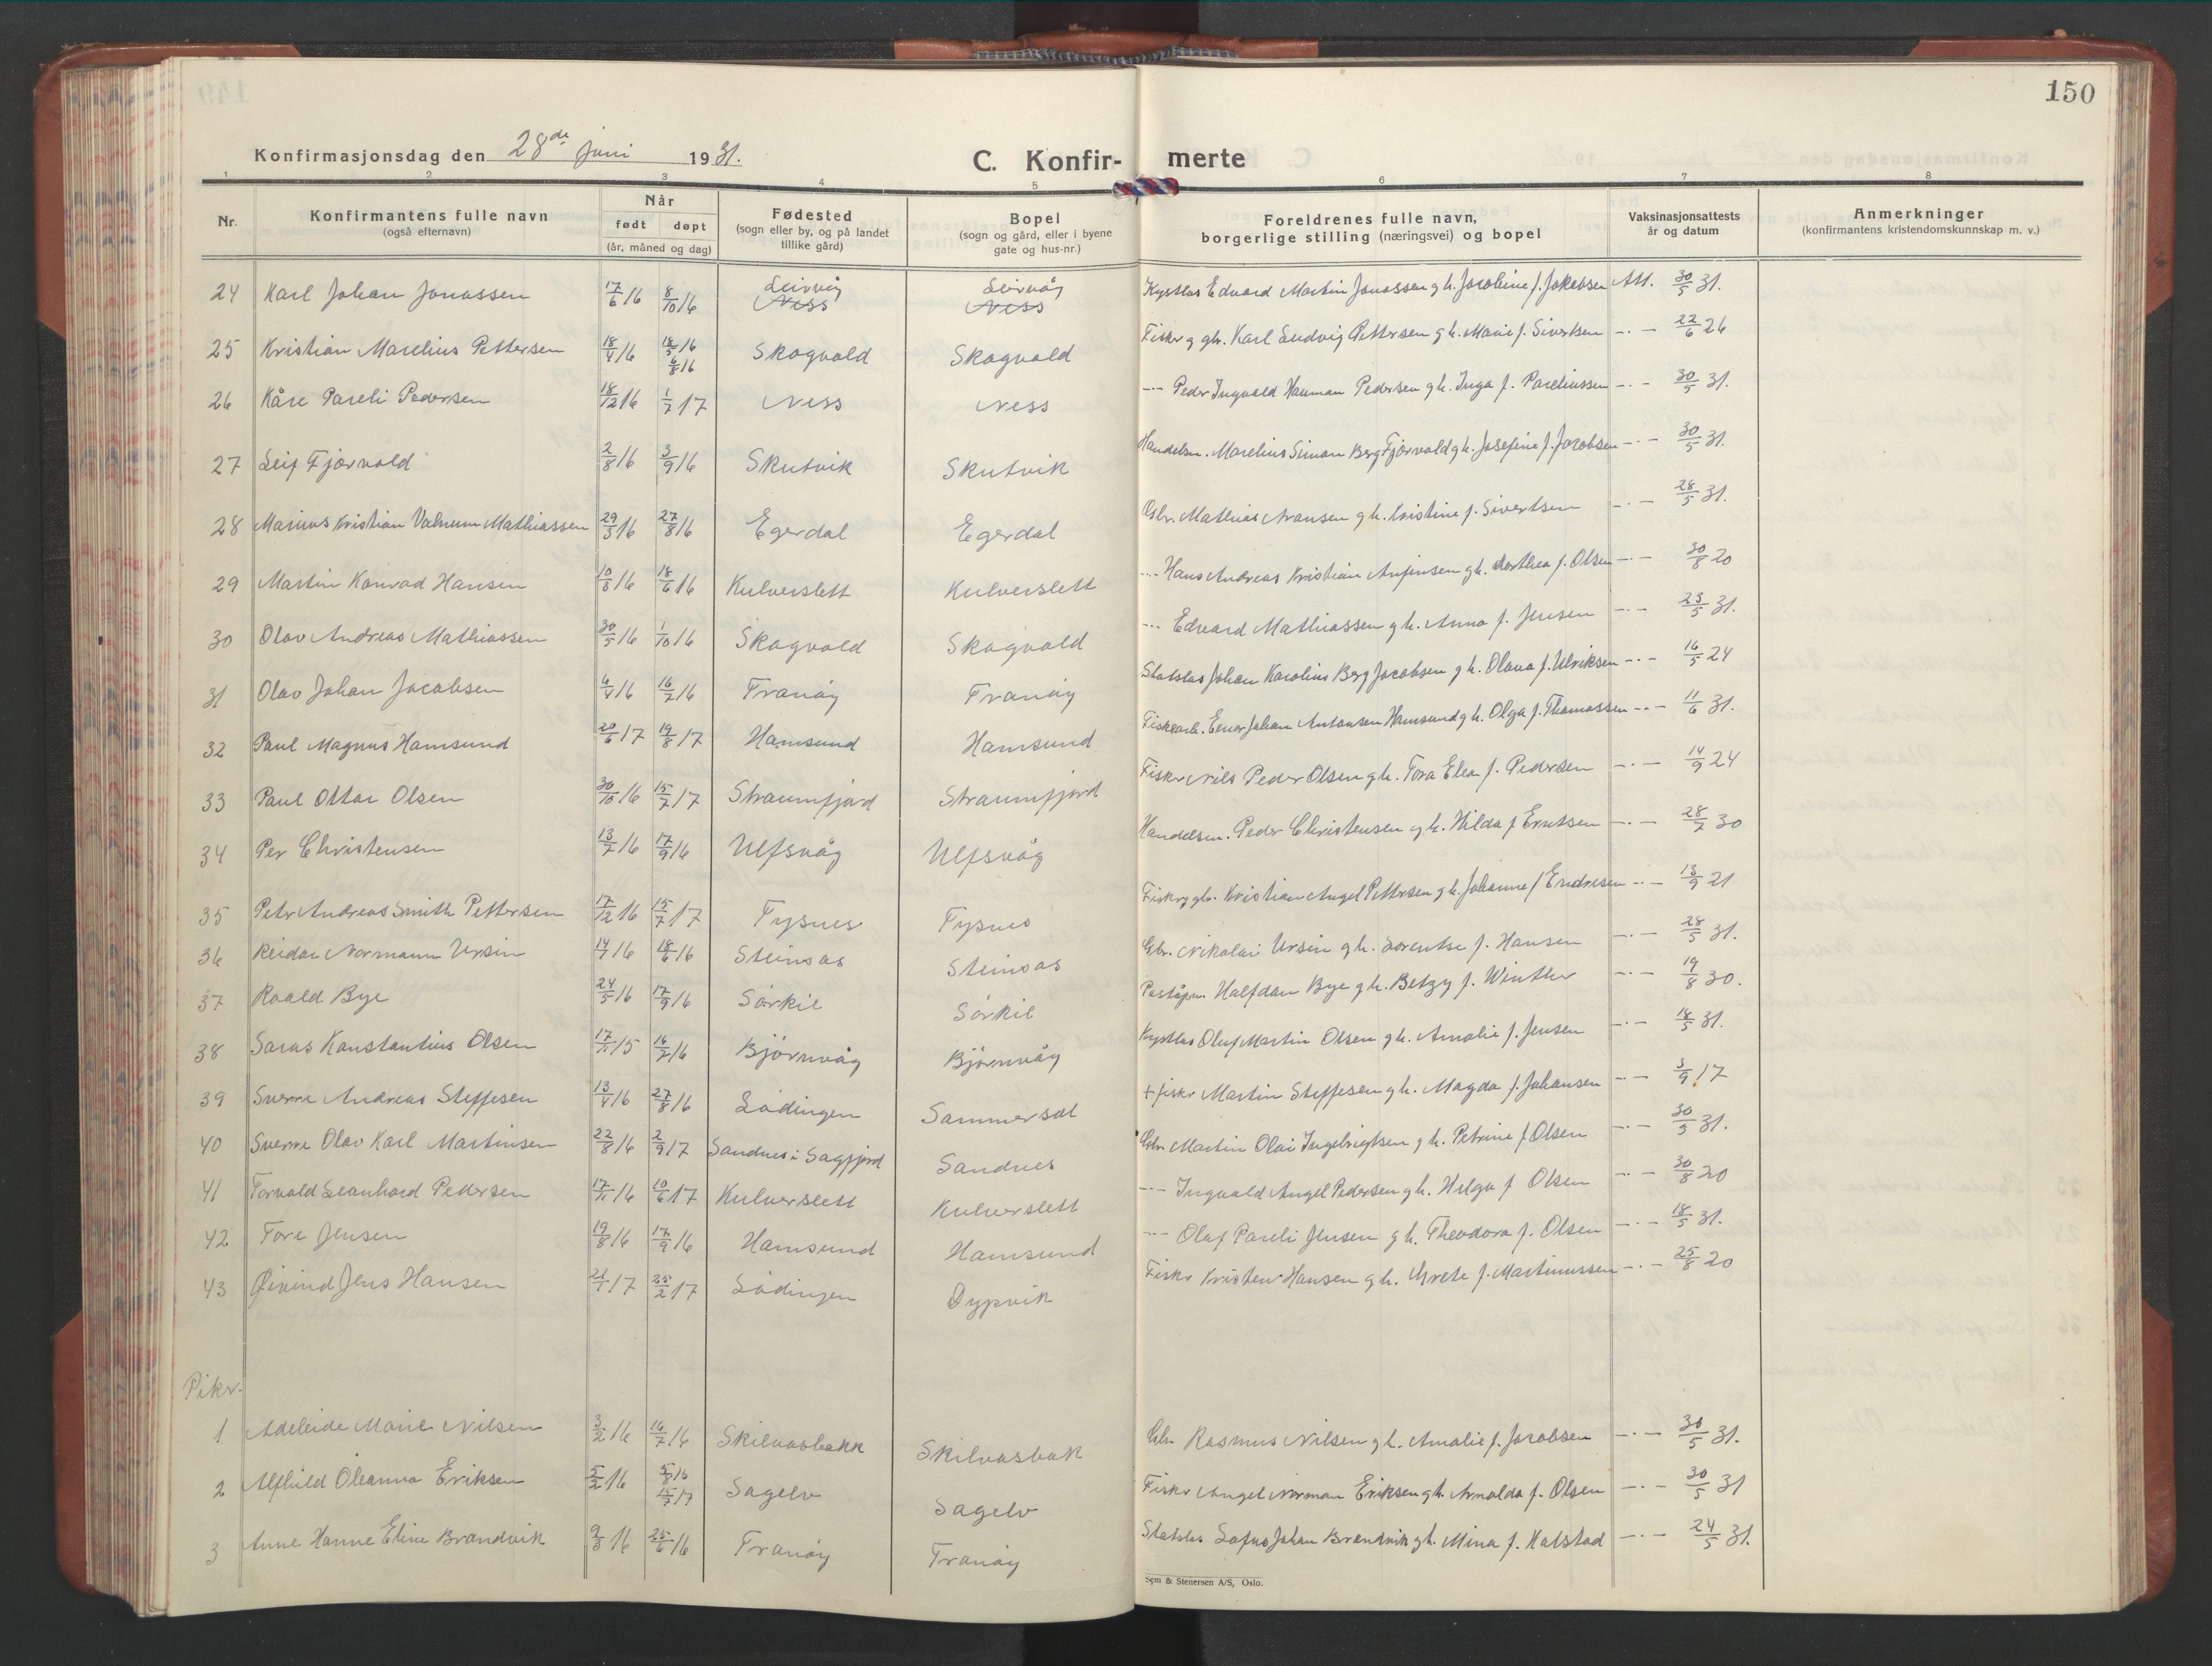 150
Konfirmasjonsdag den 28de juni 1931.
C. Konfir- merte
1 2 3 4 5 6 7 8
Nr.
Konfirmantens fulle navn
(også efternavn)
Når
født døpt
(år, måned og dag)
Fødested
(sogn eller by, og på landet
tillike gård)
Bopel
(sogn og gård, eller i byene
gate og hus-nr.)
Foreldrenes fulle navn,
borgerlige stilling (næringsvei) og bopel
Vaksinasjonsattests
år og datum
Anmerkninger
(konfirmantens kristendomskunnskap m. v.)
24 Karl Johan Jonassen 17/6 16 8/10 16 Leirvåg Ness Leirvåg Ness Kystlos Edvard Martin Jonassen g h. Jacobine f. Jakobsen Att. 30/5 31.
25 Kristian Marelius Pettersen 18/4 16 18/5 16 6/8 16 Skogvold Skogvold Fisker g gbr. Karl Ludvig Pettersen g h. Marie f. Sivertsen -"- 22/6 26
26 Kåre Pareli Pedersen 18/12 16 1/7 17 Ness Ness -"- Peder Ingvald Hauman Pedersen g h. Inga f. Pareliussen -"- 30/5 31.
27 Leif Fjærvold 2/8 16 3/9 16 Skutvik Skutvik Handelsm. Marelius Simon Berg Fjærvold g h. Josefine f. Jacobsen -"- 30/5 31.
28 Marius Kristian Mathiassen 29/3 16 27/8 16 Egerdal Egerdal Gbr. Mathias g h. Kristine f. Sivertsen -"- 28/5 31.
29 Martin Konrad Hansen 10/6 16 18/6 16 Kulverslett Kulverslett -"- Hans Andreas Kristian g h. Dorthea f. Olsen -"- 30/8 20
30 Olav Andreas Mathiassen 30/5 16 1/10 16 Skogvold Skogvold -"- Edvard Mathiassen g h. Anna f. Jensen -"- 23/5 31.
31 Olav Johan Jacobsen 6/4 16 16/7 16 Tranøy Tranøy Statslos Johan Karolius Berg Jacobsen g h. Olava f. Ulriksen -"- 16/5 24
32 Paul Magnus Hamsund 20/6 17 19/8 17 Hamsund Hamsund Fiskearb. Einar Johan Antonsen Hamsund g h. Olga f. Thomassen -"- 11/6 31.
33 Paul Ottar Olsen 30/10 16 15/7 17 Straumfjord Straumfjord Fisker Nils Peder Olsen g h. Tora Elea f. Pedersen -"- 14/9 24
34 Per Christensen 13/7 16 17/9 16 Ulfsvåg Ulfsvåg Handelsm. Peder Christensen g h. Hilda f Erntsen -"- 28/7 30
35 Petr Andreas Smith Pettersen 17/12 16 15/7 17 Tysnes Tysnes Fisker g gbr. Kristian Angel Pettersen g h. Johanne f Endresen -"- 13/9 21
36 Reidar Normann Ursin 14/4 16 18/6 16 Steinsas Steinsas Gbr. Nikolai Ursin g h. Lorentse f. Hansen -"- 28/5 31.
37 Roald Bye 24/5 16 17/9 16 Sørkil Sørkil Poståpn. Halfdan Bye g h. Betzy f. Winther -"- 19/8 30.
38 Saras Konstantius Olsen 17/11 15 16/7 16 Bjørnvåg Bjørnvåg Kystlos Oluf Martin Olsen g h. Amalie f. Jensen -"- 18/5 31.
39 Sverre Andreas Steffesen 13/4 16 27/8 16 Lødingen Sammersæt + fisker Martin Steffesen g h. Magda f. Johansen -"- 3/9 17
40 Sverre Olav Karl Martinsen 22/8 16 2/9 17 Sandnes i Sagfjord Sandnes Gbr. Martin Olai Ingebrigtsen g h. Petrine f Olsen -"- 30/5 31.
41 Torvald Leonhard Pedersen 17/11 16 10/6 17 Kulverslett Kulverslett -"- Ingvald Angel Pedersen g h. Helga f Olsen -"- 30/8 20
42 Tore Jensen 19/8 16 17/9 16 Hamsund Hamsund -"- Olaf Pareli Jensen g h. Theodora f. Olsen -"- 18/5 31.
43 Øivind Jens Hansen 21/1 17 25/2 17 Lødingen Dypvik Fisker Kristen Hansen g h. Grete f. Martinussen -"- 25/8 20
Piker.
1 Adeleide Marie Nilsen 3/2 16 16/7 16 Skilvasbakk Skilvasbak Gbr. Rasmus Nilsen g h. Amalie f. Jacobsen -"- 30/5 31.
2 Alfhild Oleanna Eriksen 5/2 16 5/8 16 15/7 17 Sagelv Sagelv Fisker Angel Norman Eriksen g h. Arnolda f. Olsen -"- 30/5 31
3 Anne Hanne Eline Brandvik 9/3 16 25/6 16 Tranøy Tranøy Statslos Johan Brandvik g h. Mina f. Kalstad -"- 24/5 31.
Sem & Stenersen A/S, Oslo.